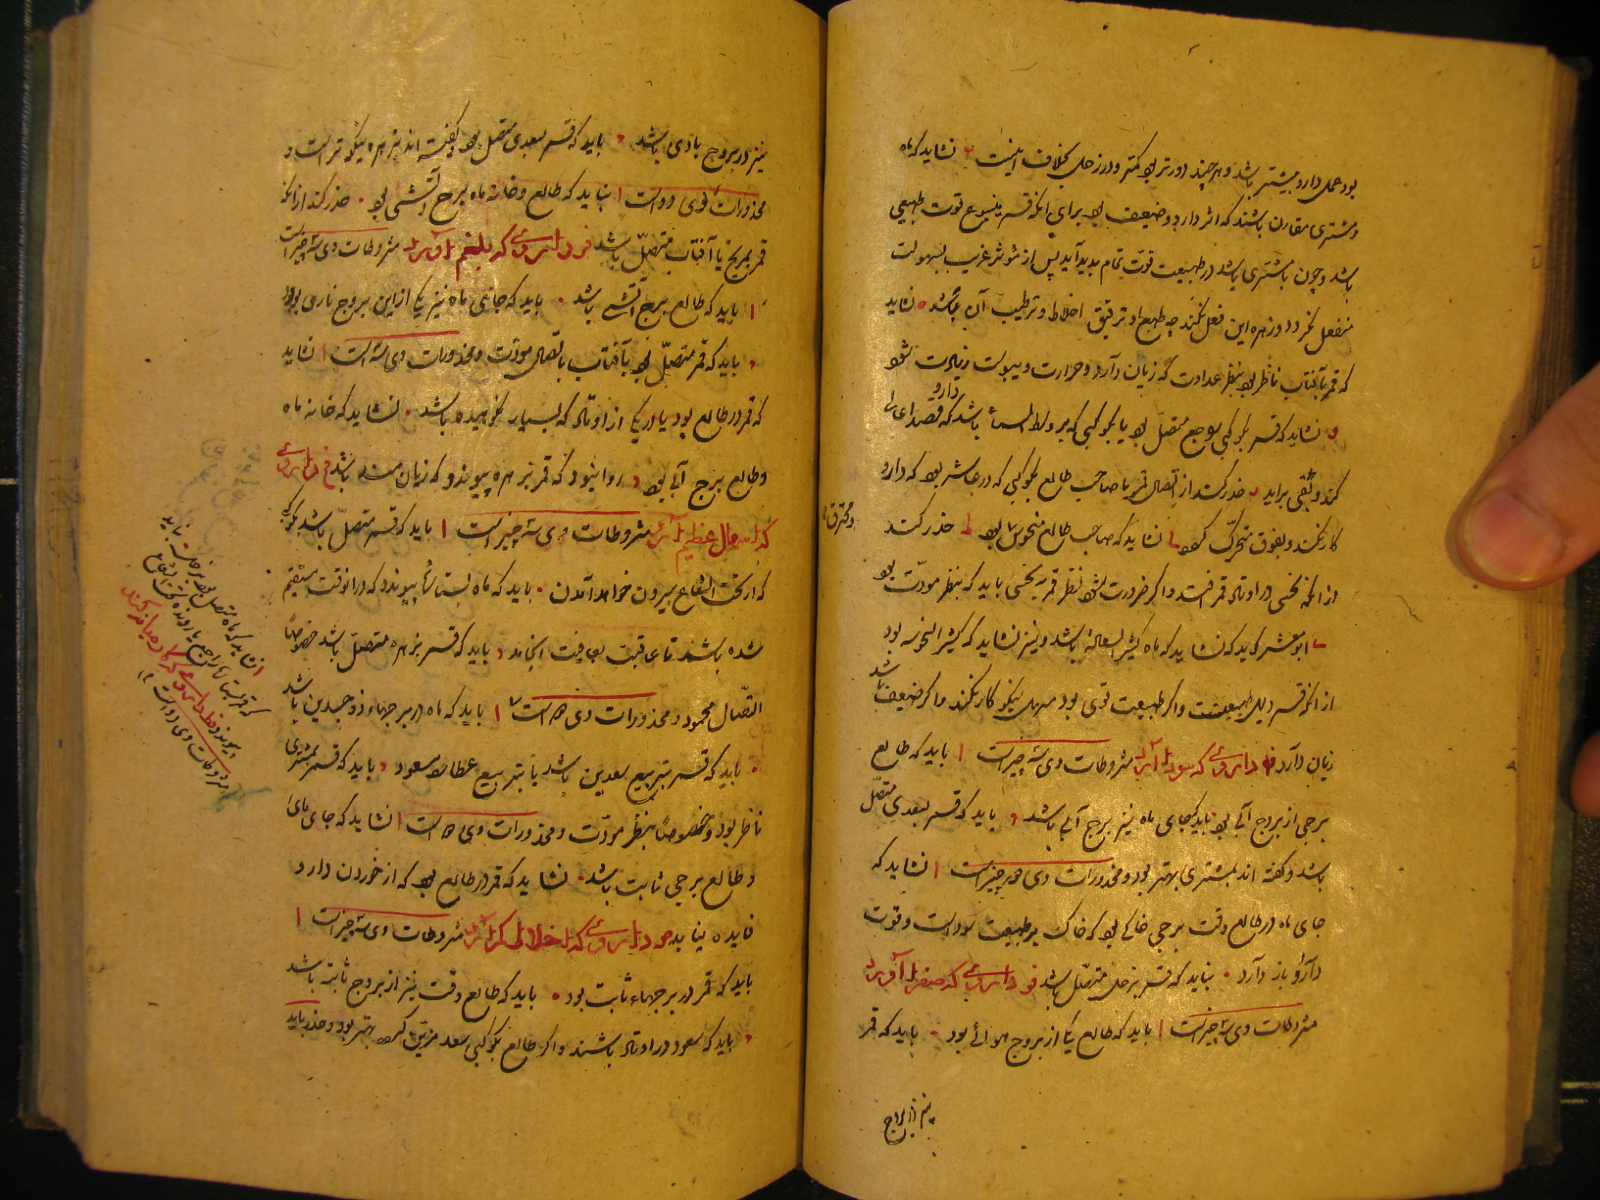 بود عمل دارو بیشتر باشد و هر چند دورتر بود کمتر و در زحل بخلاف اینست نشاید که ماه
و مشتری مقارن باشند که اثر دارو ضعیف بود برای آنکه قمر ینبوع قوت طبیعی
باشد و چون با مشتری باشد در طبیعت قوت تمام پدید آید پس از مؤثر غریب بسهولت
منفعل نگردد و زهره این فعل نکند چه طبع او ترقیق اخلاط و ترطیب آن باشد نشاید
که قمر بآفتاب ناظر بود بنظر عداوت که زیان دارد و حرارت و یبوست زیادت شود
نشاید که قمر بکوکبی راجع متصل بود یا بکوکبی که بر وسط السما باشد که دارو قصد اعالی
کند و بقی براید حذر کند از اتصال قمر یا صاحب طالع بکوکبی که در عاشر بود که دارو
کار نکند و بفوق متحرک شود نشاید که صاحب طالع منحوس بود و محترق حذر کند
از آنکه نحسی در اوتاد قمر افتد و اگر ضرورت شود نظر قمر بنحسی باید که بنظر مودت بود
ابو معشر گوید که نشاید که ماه کثیر السعادة باشد و نیز نشاید که کثیر النحوسه بود
از آنکه قمر دلیل طبیعتست و اگر طبیعت قوی بود مسهل نیکو کار نکند و اگر ضعیف باشد
زیان دارد دارویی که سودا آرد مشروطات وی سه چیز است ا باید که طالع
برجی از بروج آبی بود باید که جای ماه نیز برج آبی باشد باید که قمر بسعدی متصل
باشد و گفته اند بمشتری بهتر بود و محذورات وی چیز است ا نشاید که
جای ماه در طالع وقت برجی خاکی بود که خاک بر طبیعت سود است و قوت
دارو باز دارد نباید که قمر بزحل متصل باشد دارویی که صفرا آورد
مشروطات وی سه چیز است ا باید که طالع یکی از بروج هوائی بود باید که قمر
نیز در بروج
نیز در بروج بادی باشد باید که قمر بسعدی متصل بود و گفته اند بزهره نیکوتر است و
محذورات قوی دو است ا نباید که طالع و خانه ماه برج آتشی بود حذر کند از آنکه
قمر بمریخ یا آفتاب متصل باشد دارویی که بلغم آورد مشروطات وی سه چیز است
ا باید که طالع برج آتشی باشد باید که جای ماه نیز یکی از این بروج ناری بود
باید که قمر متصل بود بآفتاب باتصال مودت و محذورات وی سه است ا نشاید
که قمر در طالع بود یا در یکی از اوتاد که بسیار نکوهیده باشد نشاید که خانه ماه
و طالع برج آبی بود روا نبود که قمر بزهره پیوندد که زیان مند باشد دارویی
که اسهال عظیم آرد مشروطات وی سه چیز است ا باید که قمر متصل باشد بکوکبی
که از تحت الشعاع بیرون خواهد آمدن باید که ماه بستاره پیوندد که در آن وقت مستقیم
شده باشد تا عاقبت بعافیت انجامد باید که قمر بزهره متصل باشد خصوصا
اتصال محمود و محذورات وی است ا باید که ماه در برجهاء ذو جسدین باشد
باید که قمر بتربیع سعدین باشد یا بتربیع عطارد مسعود باید که قمر بمشتری
ناظر بود و خصوصا بنظر مودت و محذورات وی است ا نشاید که جای ماه
و طالع برجی ثابت باشد نشاید که قمر در طالع بود که از خوردن دارو
فایده نیابد دارویی که اخلاط کم کند مشروطات وی سه چیز است ا
باید که قمر در برجهاء ثابت بود باید که طالع وقت نیز از بروج ثابته باشد
باید که سعود در اوتاد باشند و اگر طالع بکوکبی سعد مزین شود بهتر بود و حذر باید
ا نشاید که ماه متصل بود بزحل
مشروطات وی دو است